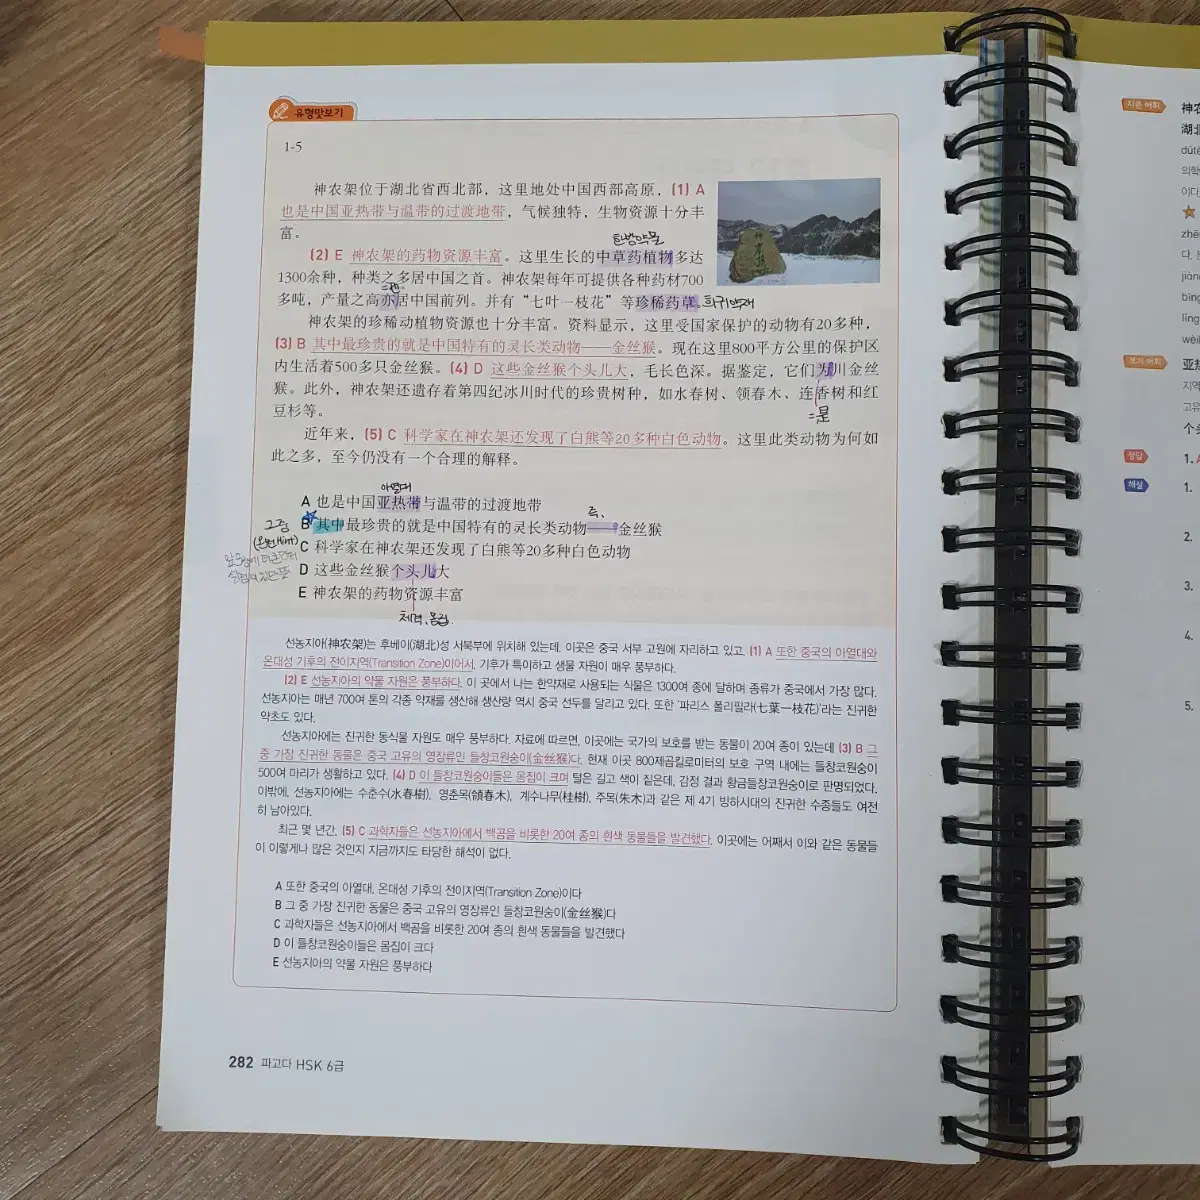 유형맛보기
1-5
神农架位于湖北省西北部，这里地处中国西部高原，(1) A
也是中国亚热带与温带的过渡地带，气候独特，生物资源十分丰
富。
한방약물
(2) E 神农架的药物资源丰富。这里生长的中草药植物多达
1300余种，种类之多居中国之首。神农架每年可提供各种药材700
多吨，产量之高亦居中国前列。并有“七叶一枝花”等珍稀药草。희귀약재
神农架的珍稀动植物资源也十分丰富。资料显示，这里受国家保护的动物有20多种，
(3) B 其中最珍贵的就是中国特有的灵长类动物——金丝猴。现在这里800平方公里的保护区
内生活着500多只金丝猴。(4) D 这些金丝猴个头儿大，毛长色深。据鉴定，它们为川金丝
猴。此外，神农架还遗存着第四纪冰川时代的珍贵树种，如水春树、领春木、连香树和红
豆杉等。
=是
近年来，(5) C 科学家在神农架还发现了白熊等20多种白色动物。这里此类动物为何如
此之多，至今仍没有一个合理的解释。
아열대
A 也是中国亚热带与温带的过渡地带
즉,
B 其中最珍贵的就是中国特有的灵长类动物——金丝猴
그중
C 科学家在神农架还发现了白熊等20多种白色动物
D 这些金丝猴个头儿大
E 神农架的药物资源丰富
체격, 몸집
선농지아(神农架)는 후베이(湖北)성 서북부에 위치해 있는데, 이곳은 중국 서부 고원에 자리하고 있고, (1) A 또한 중국의 아열대와
온대성 기후의 전이지역(Transition Zone)이어서, 기후가 특이하고 생물 자원이 매우 풍부하다.
(2) E 선농지아의 약물 자원은 풍부하다. 이 곳에서 나는 한약재로 사용되는 식물은 1300여 종에 달하며 종류가 중국에서 가장 많다.
선농지아는 매년 700여 톤의 각종 약재를 생산해 생산량 역시 중국 선두를 달리고 있다. 또한 ‘파리스 폴리필라(七葉一枝花)’라는 진귀한
약초도 있다.
선농지아에는 진귀한 동식물 자원도 매우 풍부하다. 자료에 따르면, 이곳에는 국가의 보호를 받는 동물이 20여 종이 있는데 (3) B 그
중 가장 진귀한 동물은 중국 고유의 영장류인 들창코원숭이(金丝猴)다. 현재 이곳 800제곱킬로미터의 보호 구역 내에는 들창코원숭이
500여 마리가 생활하고 있다. (4) D 이 들창코원숭이들은 몸집이 크며 털은 길고 색이 짙은데, 감정 결과 황금들창코원숭이로 판명되었다.
이밖에, 선농지아에는 수춘수(水春樹), 영춘목(領春木), 계수나무(桂樹), 주목(朱木)과 같은 제 4기 빙하시대의 진귀한 수종들도 여전
히 남아있다.
최근 몇 년간, (5) C 과학자들은 선농지아에서 백곰을 비롯한 20여 종의 흰색 동물들을 발견했다. 이곳에는 어째서 이와 같은 동물들
이 이렇게나 많은 것인지 지금까지도 타당한 해석이 없다.
A 또한 중국의 아열대, 온대성 기후의 전이지역(Transition Zone)이다
B 그 중 가장 진귀한 동물은 중국 고유의 영장류인 들창코원숭이(金丝猴)다
C 과학자들은 선농지아에서 백곰을 비롯한 20여 종의 흰색 동물들을 발견했다
D 이 들창코원숭이들은 몸집이 크다
E 선농지아의 약물 자원은 풍부하다
282 파고다 HSK 6급
지문 어휘
神农
湖北
dútè
의학
이다
zhēn
다.
jiàn
bīng
líng
wèi
보기 어휘
亚热
지역
고유
个头
정답
1. A
해설
1.
2.
3.
4.
5.